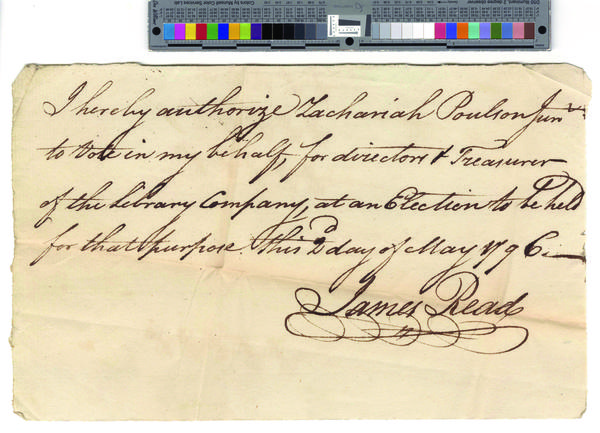 I hereby authorize Zachariah Poulson Junr
to Vote in my behalf, for directors & Treasurer
of the Library Company, at an Election to be held
for that purpose this 2d day of May 1796.
James Read